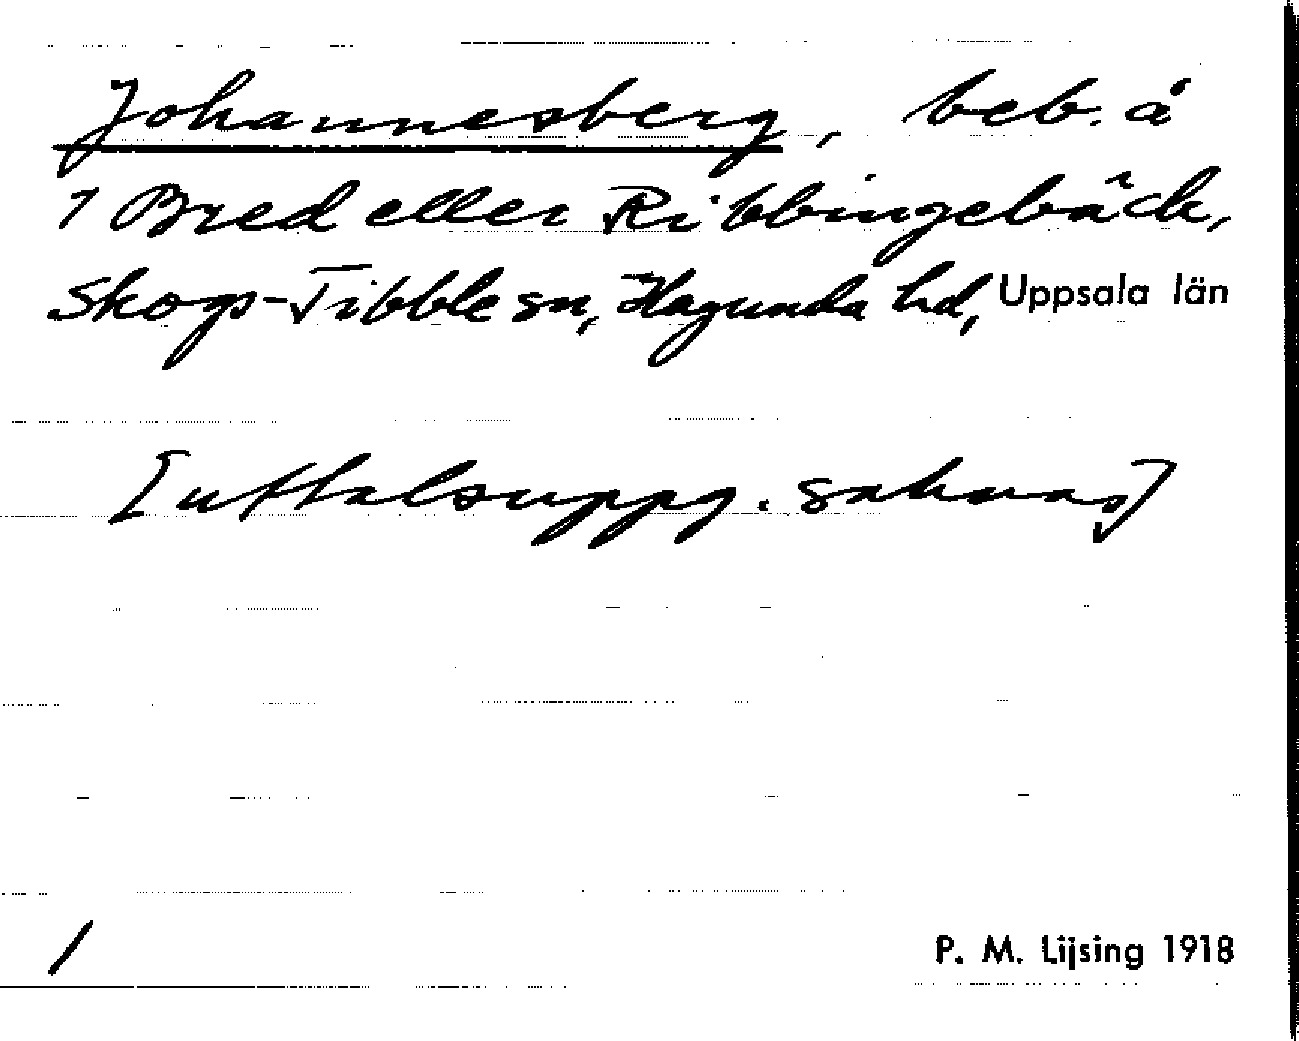 Johannesberg, beb. å
1 Bred eller Ribbingebäck,
Skogs-Tibble sn, Hagunda hd, Uppsala län
[uttalsuppg. saknas]
/
P. M. Lijsing 1918